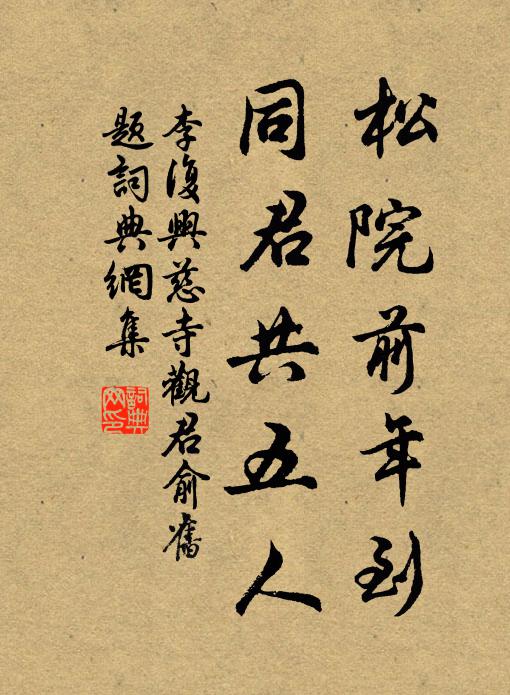 松院前年到
同君共五人
李復興慈寺觀君俞舊
題詞典網集
詞典網印